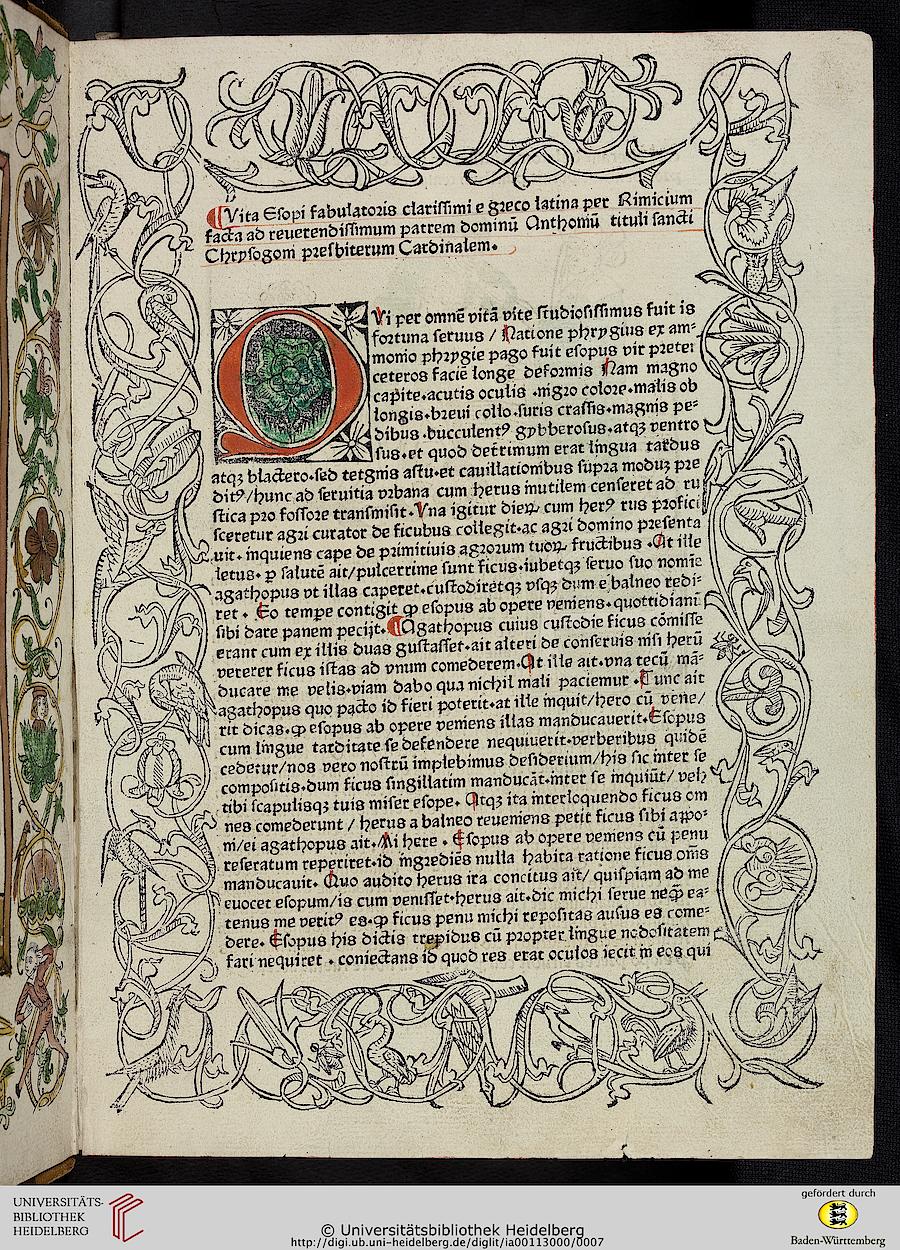 Vita Esopi fabulatoris clarissimi e greco latina per Rimicium
facta ad reuerendissimum patrem dominū Anthoniū tituli sancti
Chrysogoni presbiterum Cardinalem.
QVi per omnē vitā vite studiosissimus fuit is
fortuna seruus / Natione phrygius ex am⸗
monio phrygie pago fuit esopus vir preter
ceteros faciē longe deformis Nam magno
capite.acutis oculis .nigro colore.malis ob
longis.breui collo.suris crassis.magnis pe⸗
dibus .bucculentꝰ gybberosus.atqꝫ ventro
sus.et quod detrimum erat lingua tardus
atqꝫ blactero.sed tetgnis astu.et cauillationibus supra moduꝫ pre
ditꝰ/hunc ad seruitia vrbana cum herus inutilem censeret ad ru
stica pro fossore transmisit.Vna igitur dieꝝ cum herꝰ rus profici
sceretur agri curator de ficubus collegit.ac agri domino presenta
uit. inquiens cape de primitiuis agrorum tuoꝝ fructibus .At ille
letus. ꝓ salutē ait/pulcerrime sunt ficus.iubetqꝫ seruo suo nomie
agathopus vt illas caperet.custodiretqꝫ vsqꝫ dum e balneo redi⸗
ret . Eo tempe contigit ꝙ esopus ab opere veniens.quottidianū
sibi dare panem pecijt. Agathopus cuius custodie ficus cōmisse
erant cum ex illis duas gustasset.ait alteri de conseruis nisi herū
vererer ficus istas ad vnum comederem.At ille ait.vna tecū mā⸗
ducare me velis.viam dabo qua nichil mali paciemur .Tunc ait
agathopus quo pacto id fieri poterit.at ille inquit/hero cū vene/
rit dicas.ꝙ esopus ab opere veniens illas manducauerit.Esopus
cum lingue tarditate se defendere nequiuerit.verberibus quidē
cedetur/nos vero nostrū implebimus desiderium/his sic inter se
compositis.dum ficus singillatim manducāt.inter se inquiūt/ veh
tibi scapulisqꝫ tuis miser esope. Atqꝫ ita interloquendo ficus om
nes comederunt / herus a balneo reueniens petit ficus sibi appo⸗
ni/ei agathopus ait.Mi here . Esopus ab opere veniens cū penu
reseratum reperiret.id ingrediēs nulla habita ratione ficus om̄s
manducauit. Quo audito herus ira concitus ait/ quispiam ad me
euocet esopum/is cum venisset.herus ait.dic michi serue neq̄ꝫ ea⸗
tenus me veritꝰ es.ꝙ ficus penu michi repositas ausus es come⸗
dere. Esopus his dictis trepidus cū propter lingue nodositatem
fari nequiret . coniectans id quod res erat oculos iecit in eos qui
UNIVERSITÄTS-
BIBLIOTHEK
HEIDELBERG
© Universitätsbibliothek Heidelberg
http://digi.ub.uni-heidelberg.de/diglit/ia00113000/0007
gefördert durch
Baden-Württemberg